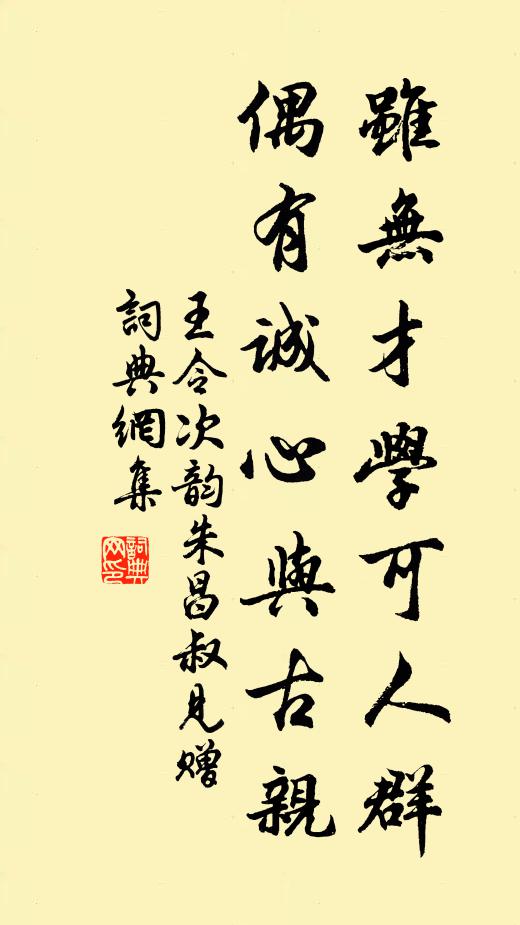 雖無才學可人群
偶有誠心與古親
王令次韵朱昌叔見赠
詞典網集
詞典网印